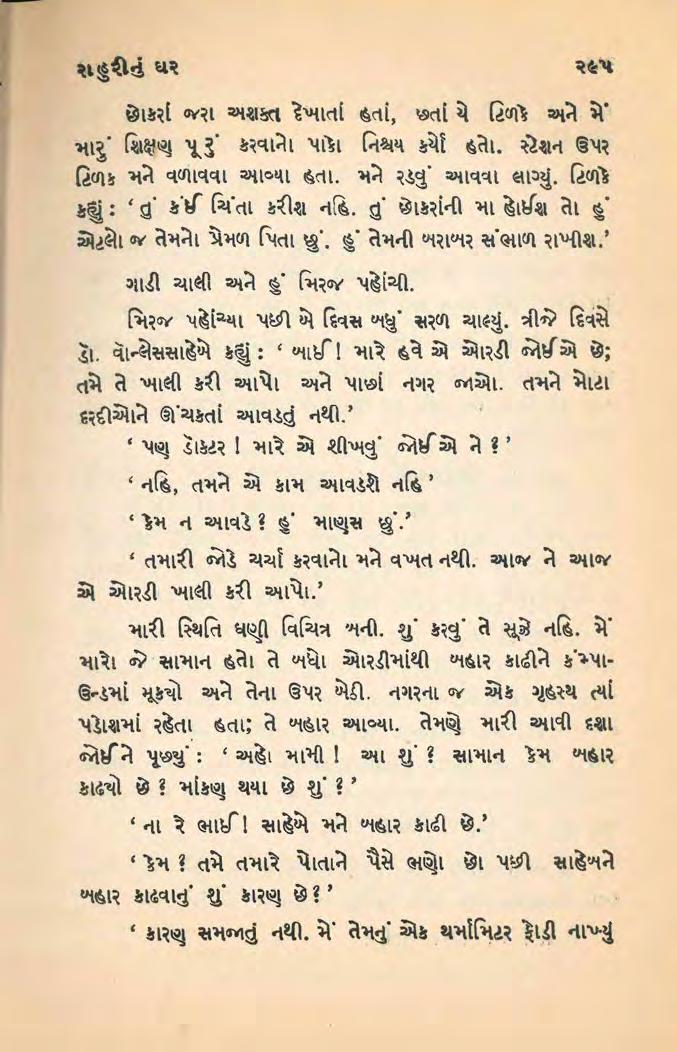 રાહુરીનું ઘર ૨૯૫
છોકરાં જરા અશક્ત દેખાતાં હતાં, છતાં યે ટિળકે અને મેં
મારું શિક્ષણ પૂરું કરવાનો પાકો નિશ્ચય કર્યો હતો. સ્ટેશન ઉપર
ટિળક મને વળાવવા આવ્યા હતા. મને રડવું આવવા લાગ્યું. ટિળકે
કહ્યું : ‘ તું કંઈ ચિંતા કરીશ નહિ. તું છોકરાંની મા હોઈશ તો હું
એટલો જ તેમનો પ્રેમળ પિતા છું. હું તેમની બરાબર સંભાળ રાખીશ.’
ગાડી ચાલી અને હું મિરજ પહોંચી.
મિરજ પહોંચ્યા પછી બે દિવસ બધું સરળ ચાલ્યું. ત્રીજે દિવસે
ડૉ. વૉન્લેસસાહેબે કહ્યું : ‘ બાઈ ! મારે હવે એ ઓરડી જોઈએ છે;
તમે તે ખાલી કરી આપો અને પાછાં નગર જાઓ. તમને મોટા
દરદીઓને ઊંચકતાં આવડતું નથી.’
‘ પણ ડૉક્ટર ! મારે એ શીખવું જોઈએ ને ? ’
‘ નહિ, તમને એ કામ આવડશે નહિ ’
‘ કેમ ન આવડે ? હું માણસ છું.’
‘ તમારી જોડે ચર્ચા કરવાનો મને વખત નથી. આજ ને આજ
એ ઓરડી ખાલી કરી આપો.’
મારી સ્થિતિ ઘણી વિચિત્ર બની. શું કરવું તે સૂઝે નહિ. મેં
મારો જે સામાન હતો તે બધો ઓરડીમાંથી બહાર કાઢીને કંમ્પા-
ઉન્ડમાં મૂક્યો અને તેના ઉપર બેઠી. નગરના જ એક ગૃહસ્થ ત્યાં
પડોશમાં રહેતા હતા; તે બહાર આવ્યા. તેમણે મારી આવી દશા
જોઈને પૂછ્યું : ‘ અહો મામી ! આ શું ? સામાન કેમ બહાર
કાઢ્યો છે ? માંકણ થયા છે શું ? ’
‘ ના રે ભાઈ ! સાહેબે મને બહાર કાઢી છે.’
‘ કેમ ? તમે તમારે પોતાને પૈસે ભણો છો પછી સાહેબને
બહાર કાઢવાનું શું કારણ છે ? ’
‘ કારણ સમજાતું નથી. મેં તેમનું એક થર્મોમિટર ફોડી નાખ્યું